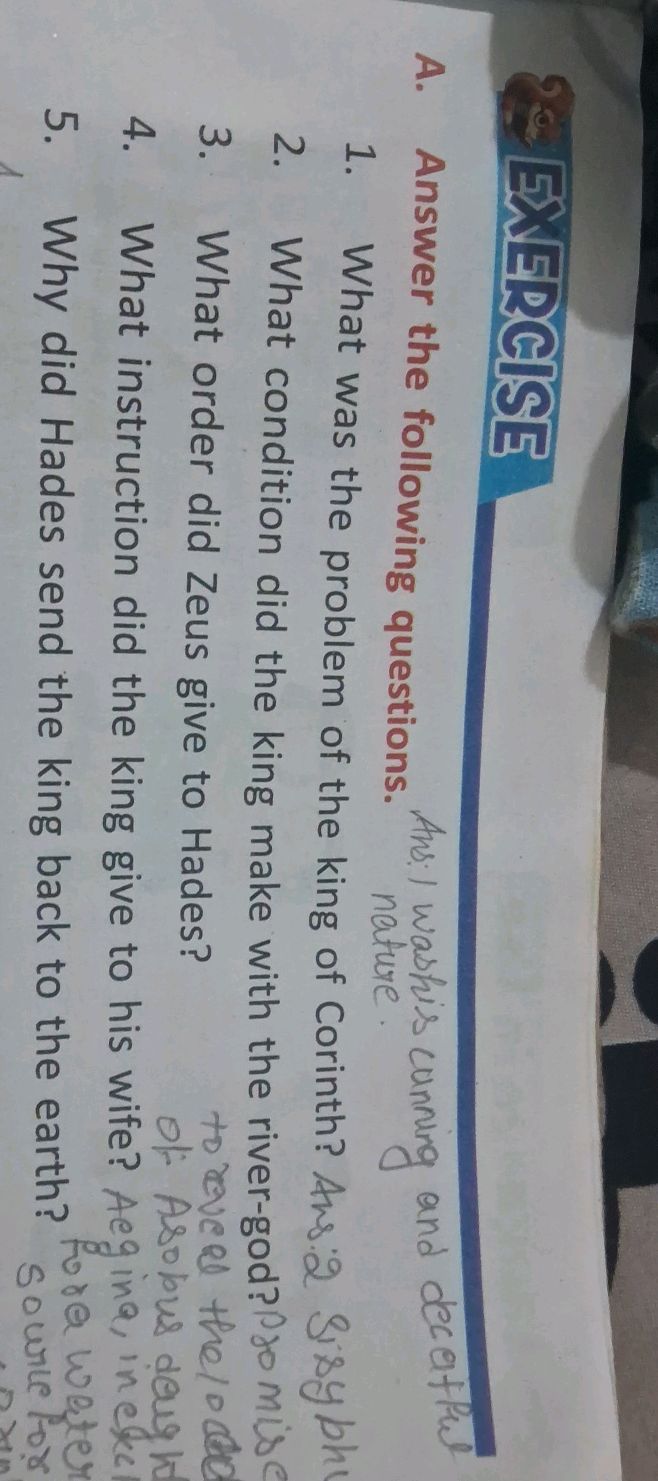 EXERCISE
A. Answer the following questions.
Ans. 1 was his cunning and deceitful
nature.
1. What was the problem of the king of Corinth? Ans. 2
2. What condition did the king make with the river-god? Promise
to reveal the
3. What order did Zeus give to Hades?
of Asopus
4. What instruction did the king give to his wife? Aegina, in
for a water
5. Why did Hades send the king back to the earth?
source for